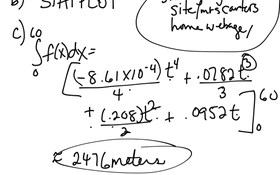 b) STAT PLOT
site/mrs carters
home webpage/
c) ∫₀⁶⁰ f(x)dx =
[(-8.61×10⁻⁴)t⁴/4 + .0782t³/3
+ (.208)t²/2 + .0952t]₀⁶⁰
≈ 2476 meters